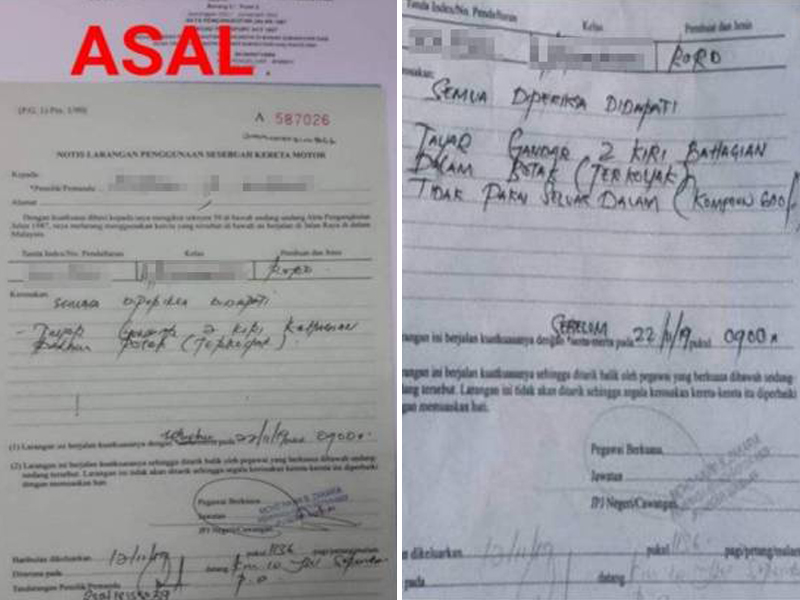 ASAL
(P.G. 1) Pin. 1/90)
A 587026
NOTIS LARANGAN PENGGUNAAN SESEBUAH KERETA MOTOR
Kepada:
*Pemilik/Pemandu
Alamat
Dengan kuatkuasa diberi kepada saya mengikut seksyen 59 di bawah undang-undang Akta Pengangkutan
Jalan 1987, saya melarang menggunakan kereta yang tersebut di bawah ini berjalan di Jalan Raya di dalam
Malaysia.
Tanda Index/No. Pendaftaran Kelas Pembuat dan Jenis
RORO
Kerosakan:
SEMUA DIPERIKSA DIDAPATI
- TAYAR GANDAR 2 KIRI BAHAGIAN
DALAM BOTAK (TERKOYAK)
(1) Larangan ini berjalan kuatkuasanya dengan pada 22/11/19 pukul 0900
(2) Larangan ini berjalan kuatkuasanya sehingga ditarik balik oleh pegawai yang berkuasa dibawah undang-
undang tersebut. Larangan ini tidak akan ditarik sehingga segala kerosakan kereta-kereta ini diperbaiki
dengan memuaskan hati.
Pegawai Berkuasa
Jawatan
JPJ Negeri/Cawangan
Haribulan dikeluarkan 12/11/19 pukul 1136 pagi/petang/malam
Dimana pada datang
Tandatangan Pemilik/Pemandu
Tanda Index/No. Pendaftaran Kelas Pembuat dan Jenis
RORO
SEMUA DIPERIKSA DIDAPATI
TAYAR GANDAR 2 KIRI BAHAGIAN
DALAM BOTAK (TERKOYAK)
TIDAK PAKAI SELUAR DALAM (KOMPAUN 600/
SEBELUM
rangan ini berjalan kuatkuasanya dengan *serta-merta pada 22/11/19 pukul 0900
rangan ini berjalan kuatkuasanya sehingga ditarik balik oleh pegawai yang berkuasa dibawah undang-
ang tersebut. Larangan ini tidak akan ditarik sehingga segala kerosakan kereta-kereta ini diperbaiki
gan memuaskan hati.
Pegawai Berkuasa
Jawatan
JPJ Negeri/Cawangan
n dikeluarkan 12/11/19 pukul 1136 pagi/petang/malam
pada datang